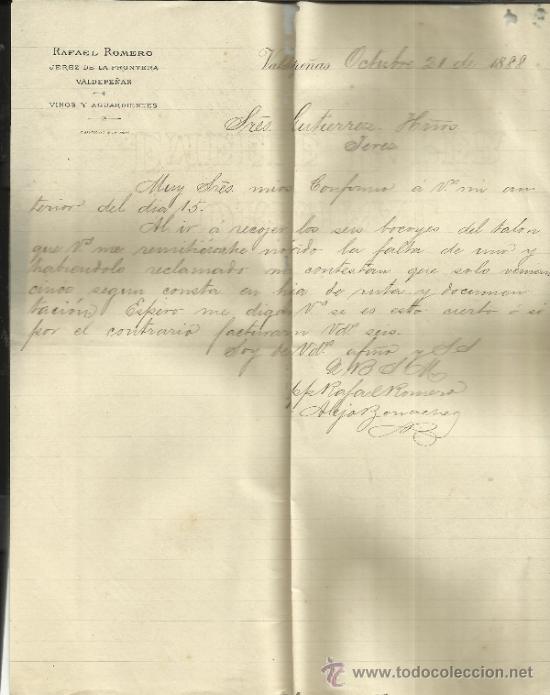 RAFAEL ROMERO
JEREZ DE LA FRONTERA
VALDEPEÑAS
VINOS Y AGUARDIENTES
Valdepeñas Octubre 21 de 1888
Srés. Gutierrez Hños
Jerez
Muy Srés. mios Confirmo á Vs mi an
terior del dia 15.
Al ir á recojer los seis bocoyes del talon
que Vs me remitiéron he notido la falta de uno y
habiendolo reclamado me contestan que solo venian
cinco segun consta en hia de ruta y documen
tación Espero me digan Vs se es esto cierto ó si
por el contrario facturaron Vds. seis.
Soy de Vds. afmo y SS
Q B S M
pp Rafael Romero
Alejo
todocoleccion
www.todocoleccion.net